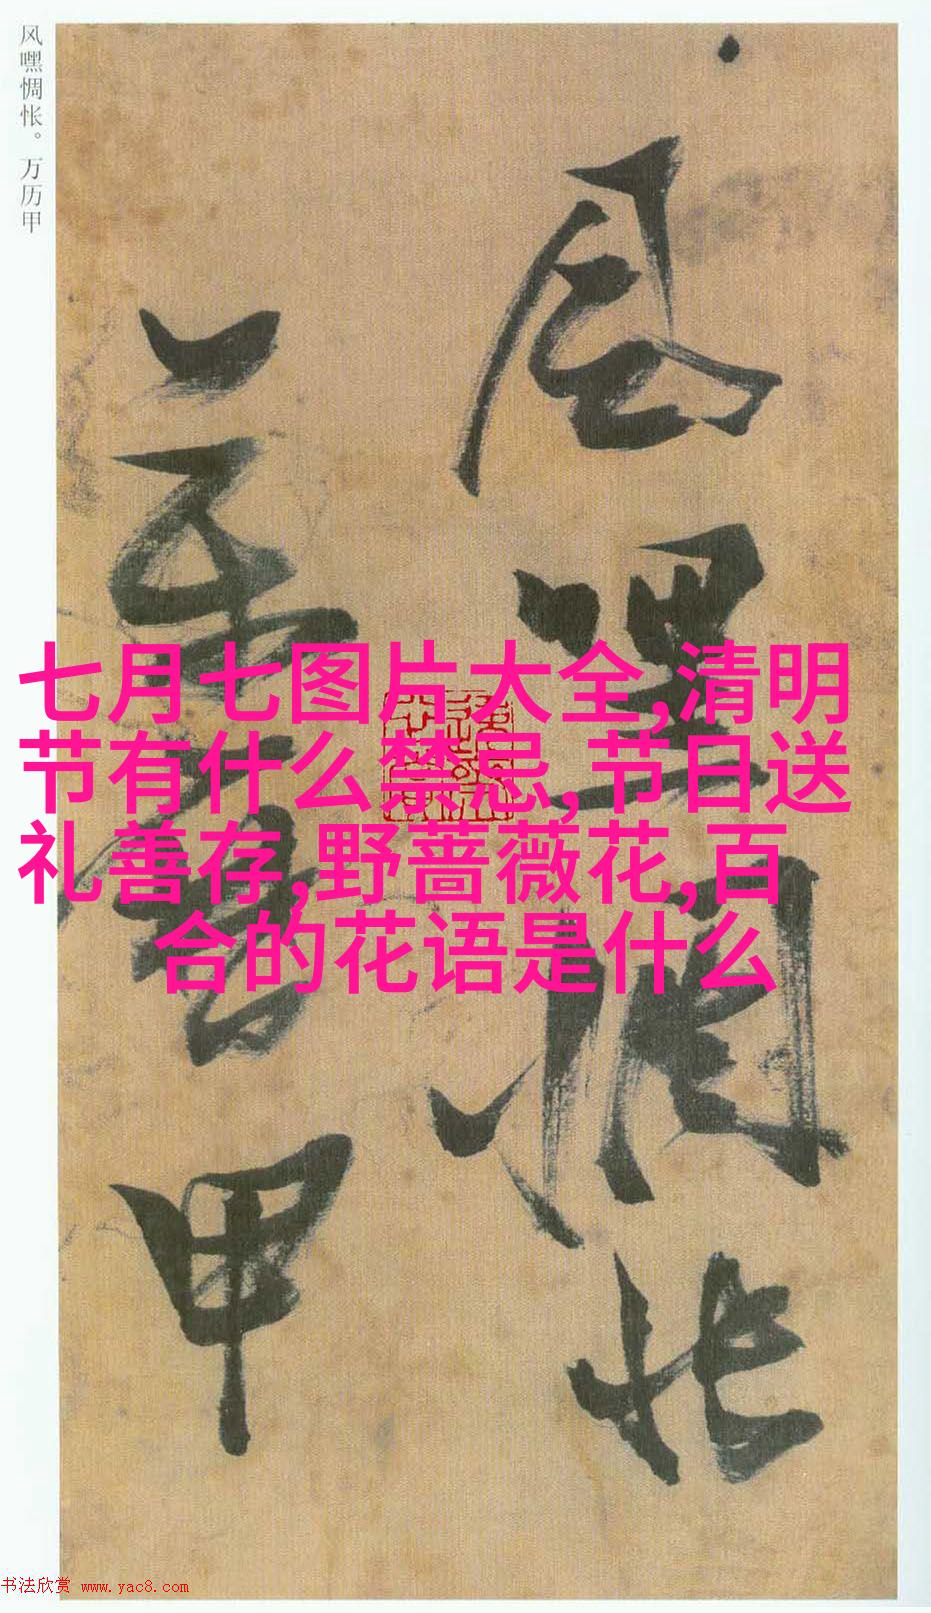 风嘿惆怅。万历甲
风
嘿
惆
怅
万
历
甲
七月七图片大全,清明
节有什么禁忌,节日送
礼善存,野蔷薇花,百
合的花语是什么
书法欣赏 www.yac8.com